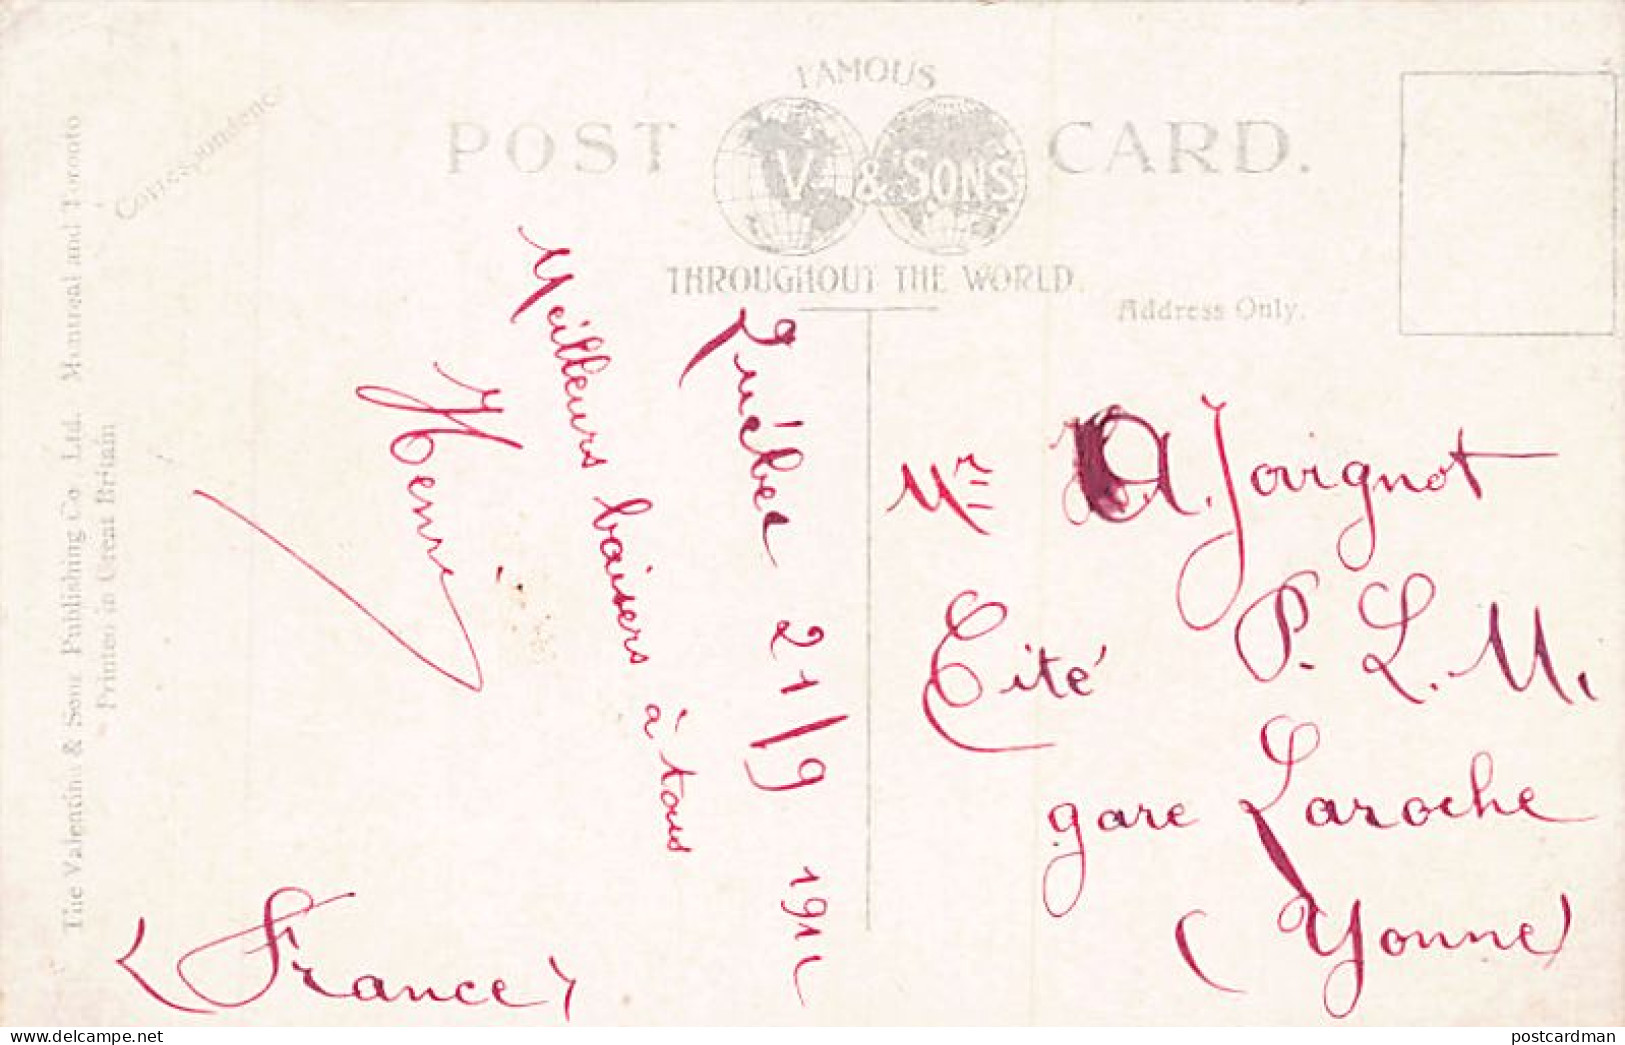 FAMOUS
POST V. & SONS CARD.
THROUGHOUT THE WORLD.
Correspondence
Address Only.
The Valentine & Sons Publishing Co., Ltd. Montreal and Toronto
Printed in Great Britain
Québec 21/9 191
Meilleurs baisers à tous
Henri
Mr A. Joignot
Cité P. L. M.
gare Laroche
(Yonne)
(France)
postcardman